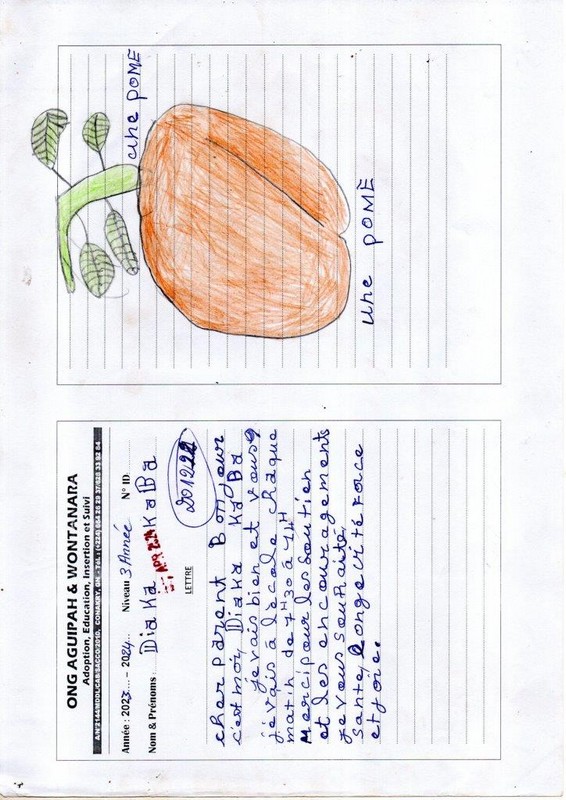 ONG AGUIPAH & WONTANARA
Adoption, Education, Insertion et Suivi
Année : 2023....- 2024.. Niveau 3 Année N° ID
Nom & Prénoms : Diaka KaBa
APR 2024
LETTRE
201222
cher parent Bonjour
c'est moi, Diaka KaBa
je vais bien et vous?
je vais à l'école chaque
matin de 7H30 à 14H
Merci pour le soutien
et les encouragements
je vous souhaite,
Santé, longevité force
et joie.
une POMÈ
une POMÈ